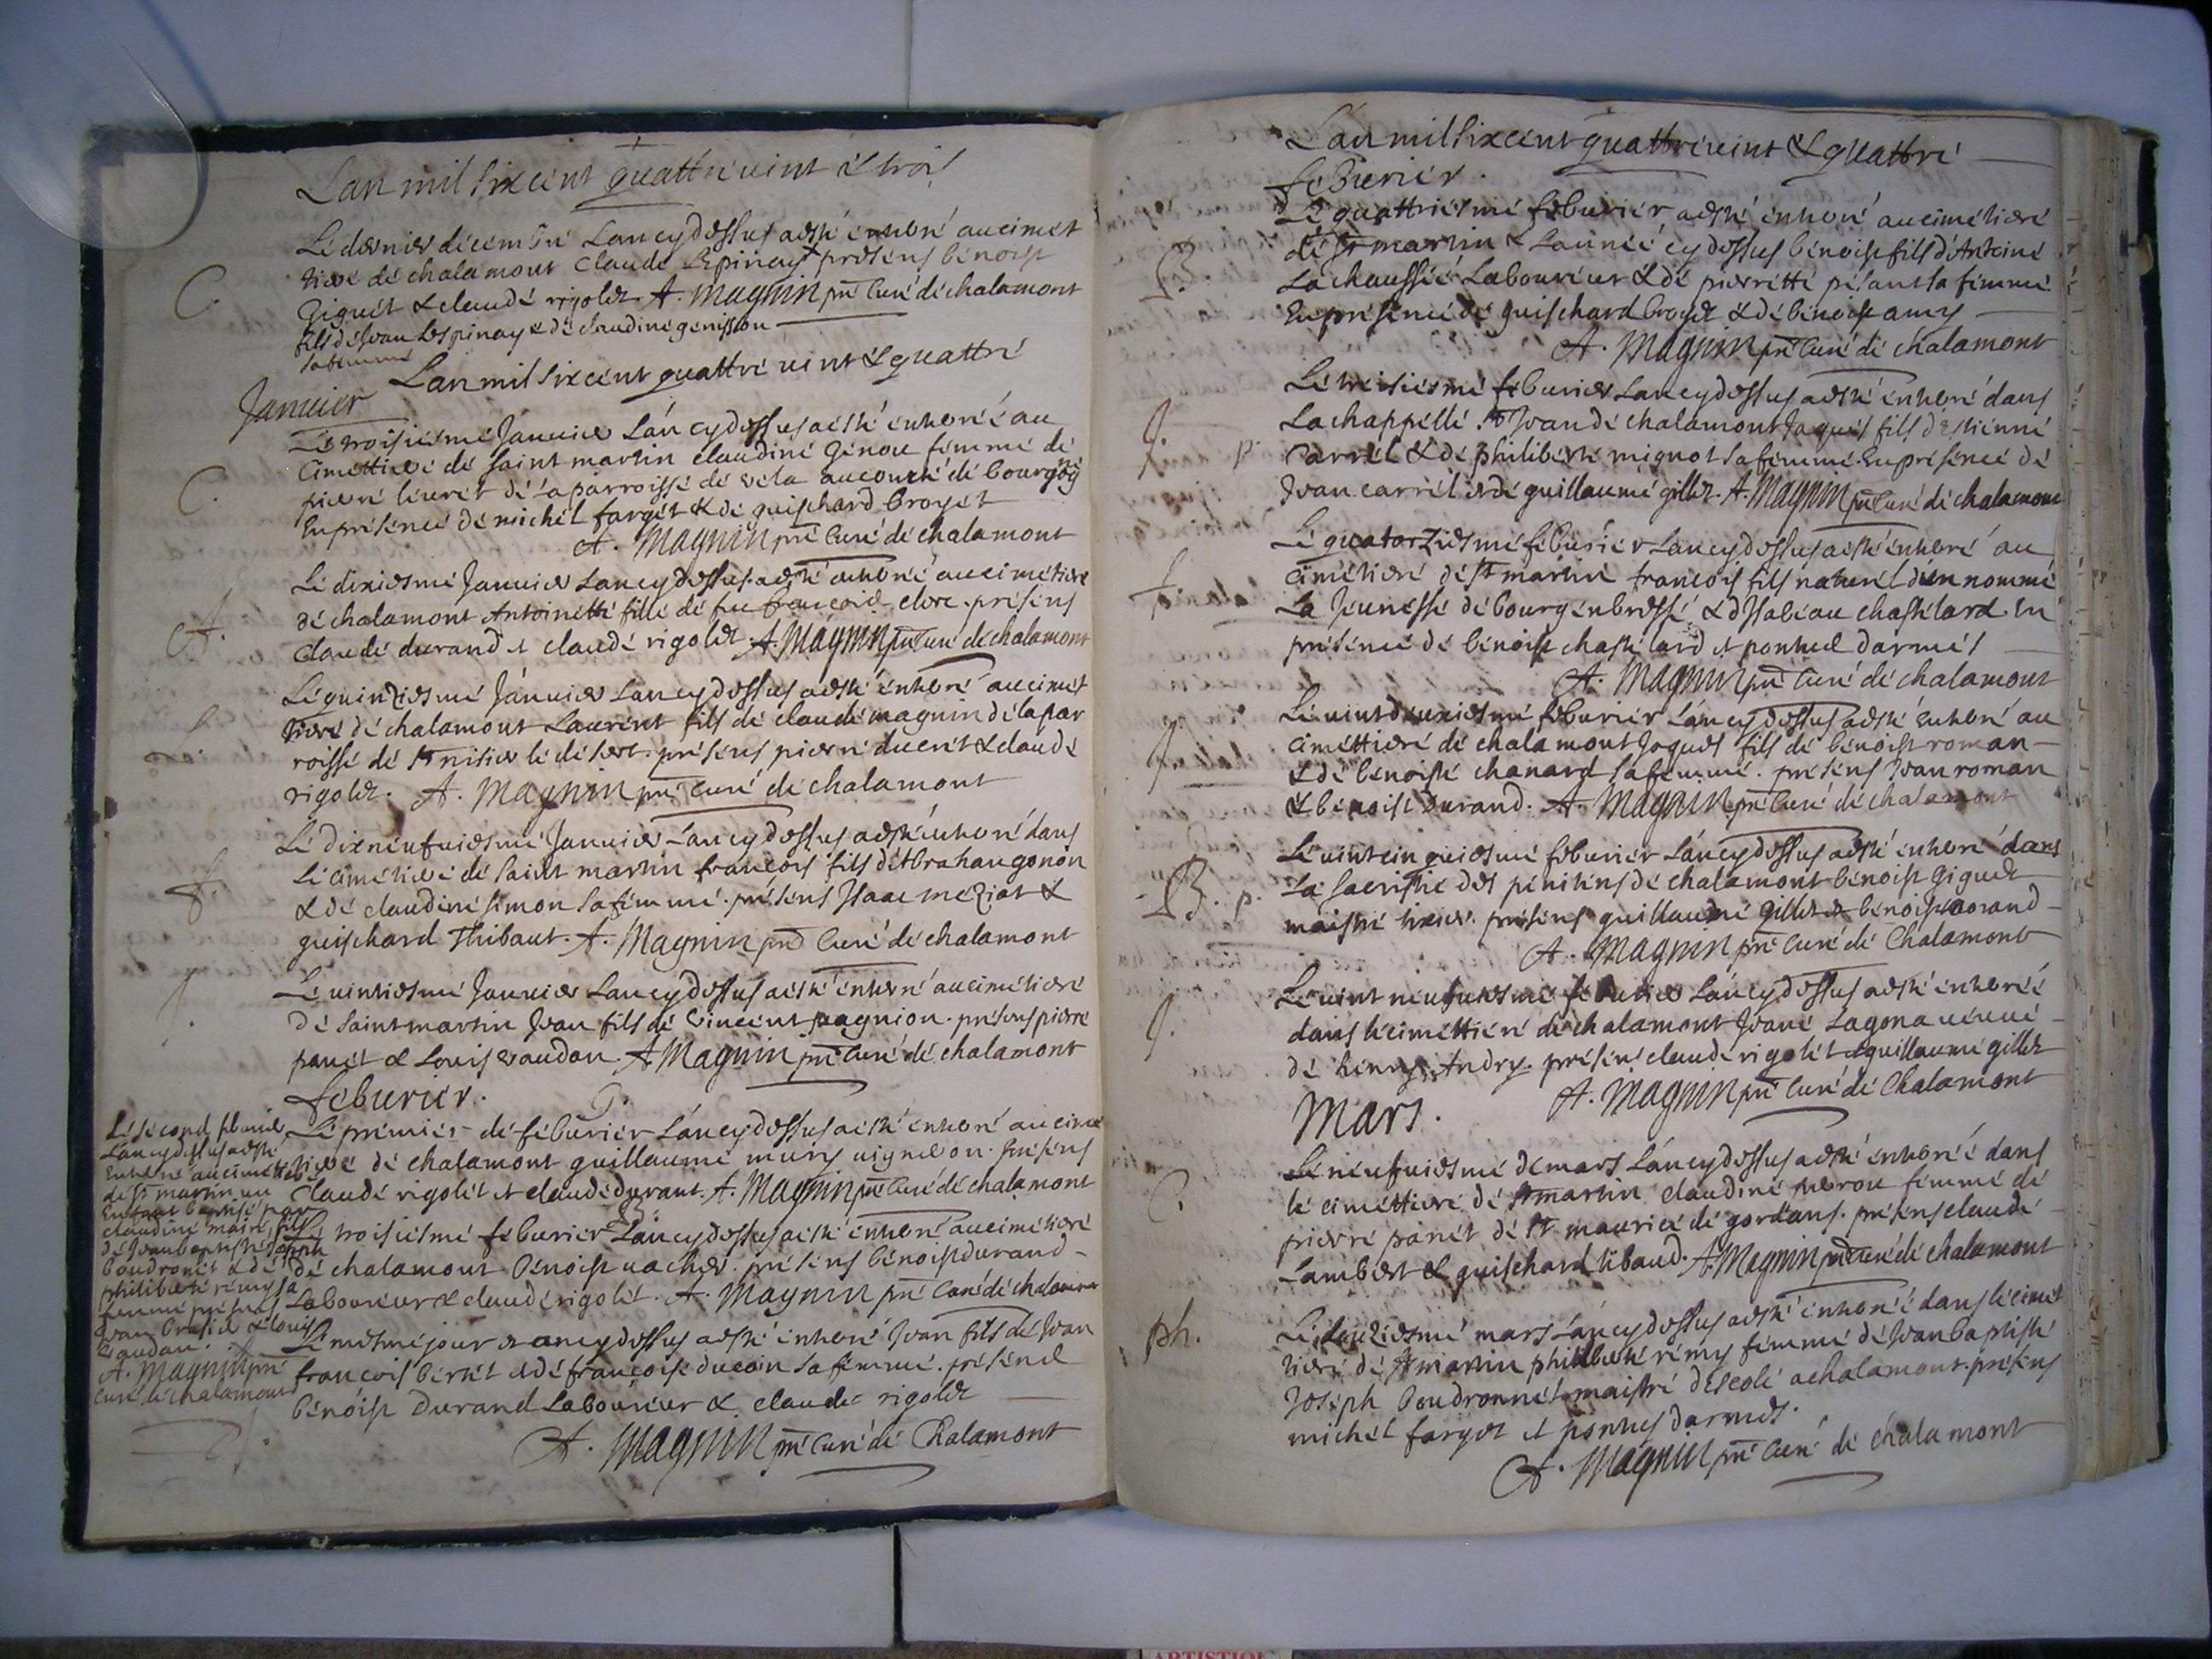 Lan mil six cent quattre vint & trois
Le dernier décembre Lan cy dessus a esté enterré au cimet
C.
tiere de chalamont Claude Espinay présens benoist
Giguet & claude rigolet. A. Magnin pre Curé de chalamont
fils de Jean Lespinay & de claudine genisson
sa femme
Lan mil six cent quattre vint & quattre
Janvier
Le troisiesme Janvier Lan cy dessus a esté enterré é au
Cimettiere de saint martin claudine Genou femme de
C.
pierre leuret de la parroisse de vela au conté de bourgog
En présence de michel farget & de guischard broyet
A. Magnin pre Curé de chalamont
Le dixiesme Janvier Lan cy dessus a esté enterré au cimetiere
A.
de chalamont Antoinette fille de feu françois clere. présens
claude durand et claude rigolet. A. Magnin pre Curé de chalamont
Le quinziesme Janvier Lan cy dessus a esté enterré au cimet
tiere de chalamont Laurent fils de claude magnin de la par
L.
roisse de St nisier le desert. présens pierre ducret & claude
rigolet. A. Magnin pre Curé de chalamont
Le dixneufuiesme Janvier Lan cy dessus a esté enterré dans
Le cimetiere de saint martin françois fils d'Abrahan gonon
f.
& de claudine simon sa femme. présens Isaac meziat &
guischard Thibaut. A. Magnin pre Curé de chalamont
Le vintiesme Janvier Lan cy dessus a esté enterré au cimetiere
J.
de saint martin Jean fils de vincent pagnion. présens pierre
panet & Louis vaudan. A Magnin pre Curé de chalamont
feburier.
G.
Le premier de feburier Lan cy dessus a esté enterré au cime
tiere de chalamont guillaume mury vigneron. présens
Claude rigolet et claude durant. A. Magnin pre Curé de chalamont
B.
Le troisiesme feburier Lan cy dessus a esté enterré au cimetiere
de chalamont benoist vacher. présens benoist durand
Laboureur & claude rigolet. A. Magnin pre Curé de chalamont
Le mesme jour & an cy dessus a esté enterré Jean fils de Jean
françois bertet & de françoise ducoin sa femme. présence
benoist durand Laboureur & claude rigolet
A. Magnin pre Curé de Chalamont
Le second feburier
Lan cy dessus a esté
enterré au cimettiere
de St martin un
Enfant baptisé par
claudine maire, fils
de Jean baptiste Joseph
boudronet & de
philiberte remy sa
femme présens
Jean brasier & Louis
vaudan.
A. Magnin pre
Curé de chalamont
Lan mil six cent quattre vint & quattre
feburier.
Le quattriesme feburier a esté enterré au cimetiere
de St martin & Lannée cy dessus benoist fils d'Antoine
B.
La chaussée Laboureur & de pierrette pesant sa femme.
En présence de guischard broyet & de benoist amy
A. Magnin pre Curé de chalamont
Le treisiesme feburier Lan cy dessus a esté enterré dans
La chappelle St Jean de chalamont Jaques fils d'estienne
J. p.
Carrel & de philiberte mignot sa femme. En présence de
Jean carrel & de guillaume gillet. A. Magnin pre Curé de chalamont
Le quatorziesme feburier Lan cy dessus a esté enterré au
cimetiere de St martin françois fils naturel d'un nommé
f.
La Jeunesse de bourg en bresse & d'Isabeau chastelard. En
présence de benoist chastelard et pontus darmes
A. Magnin pre Curé de chalamont
Le vintdeuxiesme feburier Lan cy dessus a esté enterré au
J.
cimettiere de chalamont Jaques fils de benoist roman
& de benoiste chanard sa femme. présens Jean roman
& benoist durand. A. Magnin pre Curé de chalamont
Le vintcinquiesme feburier Lan cy dessus a esté enterré dans
B. p.
La sacristie des pénitens de chalamont benoist Giguet
maistre tixier. présens guillaume gillet & benoist morand
A. Magnin pre Curé de Chalamont
Le vint neufuiesme feburier Lan cy dessus a esté enterrée
J.
dans le cimettiere de chalamont Jeane Lagona veuve
de henry Andry. présens claude rigolet & guillaume gillet
A. Magnin pre Curé de Chalamont
Mars.
Le neufuiesme de mars Lan cy dessus a esté enterrée dans
C.
le cimettiere de St martin claudine perrou femme de
pierre panet de St maurice de gordans. présens claude
Lambert & guischard tibaud. A. Magnin pre Curé de chalamont
Le douziesme mars Lan cy dessus a esté enterrée dans le cimet
ph.
tiere de St martin philiberte remy femme de Jean baptiste
Joseph boudronnet maistre d'escole a chalamont. présens
michel farget et pontus darmes.
A. Magnin pre Curé de chalamont